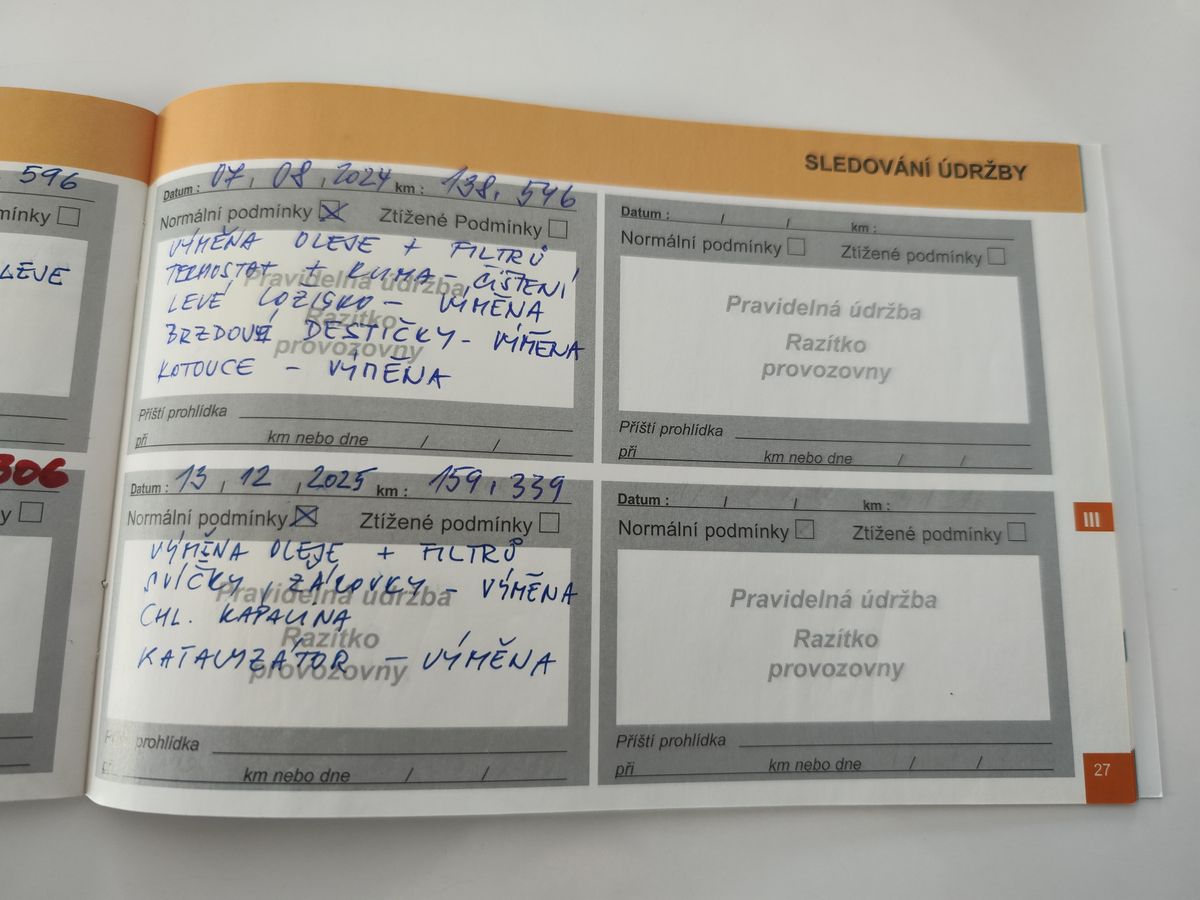 596
mínky
LEJE
306
y
SLEDOVÁNÍ ÚDRŽBY
Datum : 07, 08, 2024 km : 138, 546
Normální podmínky Ztížené Podmínky
VÝMĚNA OLEJE + FILTRŮ
TERMOSTAT + KLIMA - ČIŠTENÍ
LEVÉ LOŽISKO - VÝMĚNA
BRZDOVÉ DESTIČKY - VÝMĚNA
KOTOUCE - VÝMĚNA
Pravidelná údržba
Razítko
provozovny
Příští prohlídka
při km nebo dne / /
Datum : / / km :
Normální podmínky Ztížené podmínky
Pravidelná údržba
Razítko
provozovny
Příští prohlídka
při km nebo dne / /
Datum : 13, 12, 2025 km : 159, 339
Normální podmínky Ztížené podmínky
VÝMĚNA OLEJE + FILTRŮ
SVÍČKY, ŽÁROVKY - VÝMĚNA
CHL. KAPALINA
KATALYZÁTOR - VÝMĚNA
Pravidelná údržba
Razítko
provozovny
Příští prohlídka
při km nebo dne / /
Datum : / / km :
Normální podmínky Ztížené podmínky
Pravidelná údržba
Razítko
provozovny
Příští prohlídka
při km nebo dne / /
III
27